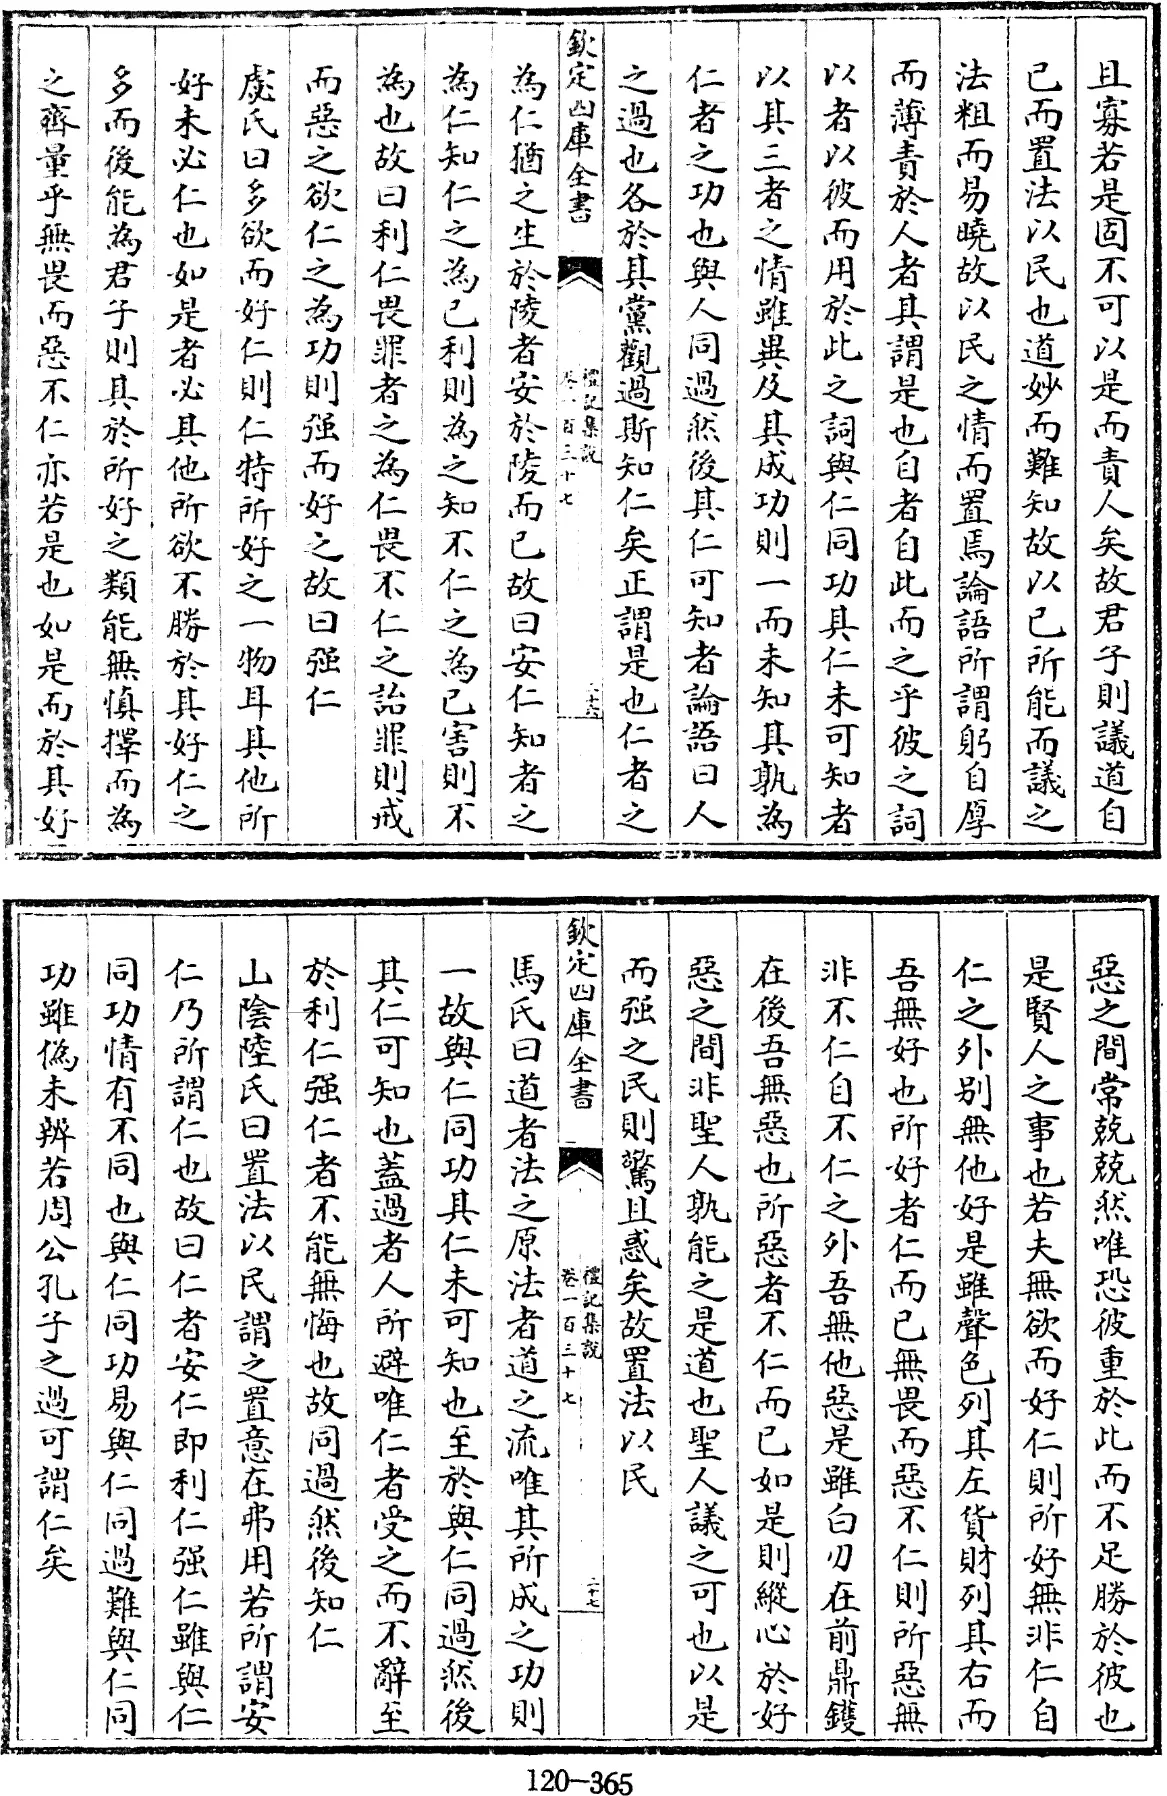 且寡若是固不可以是而責人矣故君子則議道自
已而置法以民也道妙而難知故以已所能而議之
法粗而易曉故以民之情而置焉論語所謂躬自厚
而薄責於人者其謂是也自者自此而之乎彼之詞
以者以彼而用於此之詞與仁同功其仁未可知者
以其三者之情雖異及其成功則一而未知其孰為
仁者之功也與人同過然後其仁可知者論語曰人
之過也各於其黨觀過斯知仁矣正謂是也仁者之
欽定四庫全書
禮記集説
卷一百三十七
三十六
為仁猶之生於陵者安於陵而已故曰安仁知者之
為仁知仁之為已利則為之知不仁之為已害則不
為也故曰利仁畏罪者之為仁畏不仁之詒罪則戒
而惡之欲仁之為功則强而好之故曰强仁
虙氏曰多欲而好仁則仁特所好之一物耳其他所
好未必仁也如是者必其他所欲不勝於其好仁之
多而後能為君子則其於所好之類能無慎擇而為
之齊量乎無畏而惡不仁亦若是也如是而於其好
惡之間常兢兢然唯恐彼重於此而不足勝於彼也
是賢人之事也若夫無欲而好仁則所好無非仁自
仁之外别無他好是雖聲色列其左貨財列其右而
吾無好也所好者仁而已無畏而惡不仁則所惡無
非不仁自不仁之外吾無他惡是雖白刃在前鼎鑊
在後吾無惡也所惡者不仁而已如是則縱心於好
惡之間非聖人孰能之是道也聖人議之可也以是
而强之民則驚且惑矣故置法以民
欽定四庫全書
禮記集説
卷一百三十七
三十七
馬氏曰道者法之原法者道之流唯其所成之功則
一故與仁同功其仁未可知也至於與仁同過然後
其仁可知也蓋過者人所避唯仁者受之而不辭至
於利仁强仁者不能無悔也故同過然後知仁
山陰陸氏曰置法以民謂之置意在弗用若所謂安
仁乃所謂仁也故曰仁者安仁即利仁强仁雖與仁
同功情有不同也與仁同功易與仁同過難與仁同
功雖偽未辨若周公孔子之過可謂仁矣
120-365